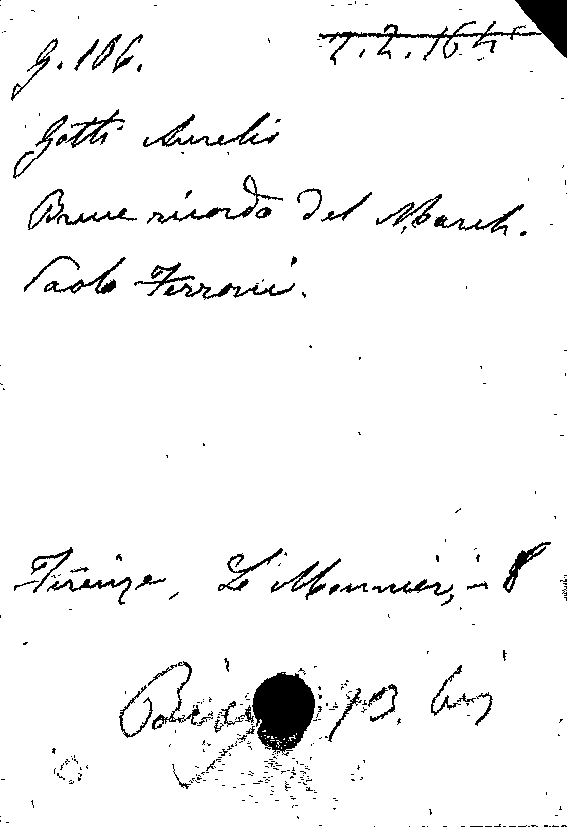 G. 106.
2.2.164
Gotti Aurelio
Breve ricordo del March.
Paolo Ferroni.
Firenze, Le Monnier, in 8
93. bis